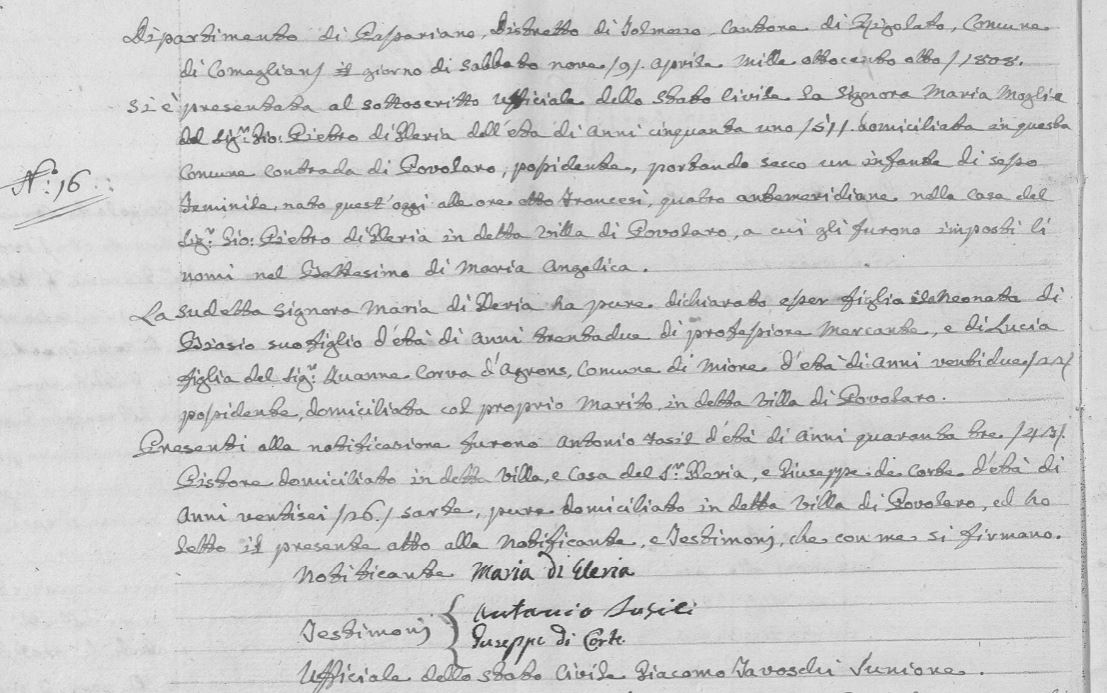 Dipartimento di Passariano, Distretto di Tolmezzo, Cantone di Rigolato, Comune
di Comeglians il giorno di Sabbato nove /9/ Aprile Mille ottocento otto /1808.
Si è presentata al sottoscritto Ufficiale dello stato Civile la Signora Maria Moglie
del Sig.r Gio: Pietro di Lleria dell'età di Anni cinquanta uno /51/. domiciliata in questa
N.º 16
Comune Contrada di Povolaro, possidente, portando secco un infante di sesso
feminile, nato quest'oggi alle ore otto Francesi, quatro antemeridiane nella Casa del
Sig.r Gio: Pietro di Lleria in detta Villa di Povolaro, a cui gli furono imposti li
nomi nel Battesimo di Maria Angelica.
La sudetta Signora Maria di Lleria ha pure dichiarato esser figlia la Neonata di
Biasio suo figlio d'età di Anni trentadue di professione Mercante, e di Lucia
figlia del Sig.r Quanne Corva d'Agrons, Comune di Mione d'età di Anni ventidue /22/
possidente, domiciliata col proprio Marito, in detta Villa di Povolaro.
Presenti alla notificazione furono Antonio d'età di Anni quaranta tre /43/.
Pistore domiciliato in detta Villa, e Casa del S.r Lleria, e Giuseppe de Corte d'età di
Anni ventisei /26./ sarte, pure domiciliato in detta Villa di Povolaro, ed ho
letto il presente atto alla Notificante, e Testimonj, che con me si firmano.
Notificante Maria di Lleria
Testimonj { Antonio
Giuseppe di Corte
Ufficiale dello stato Civile Giacomo Tavoschi Juniore.